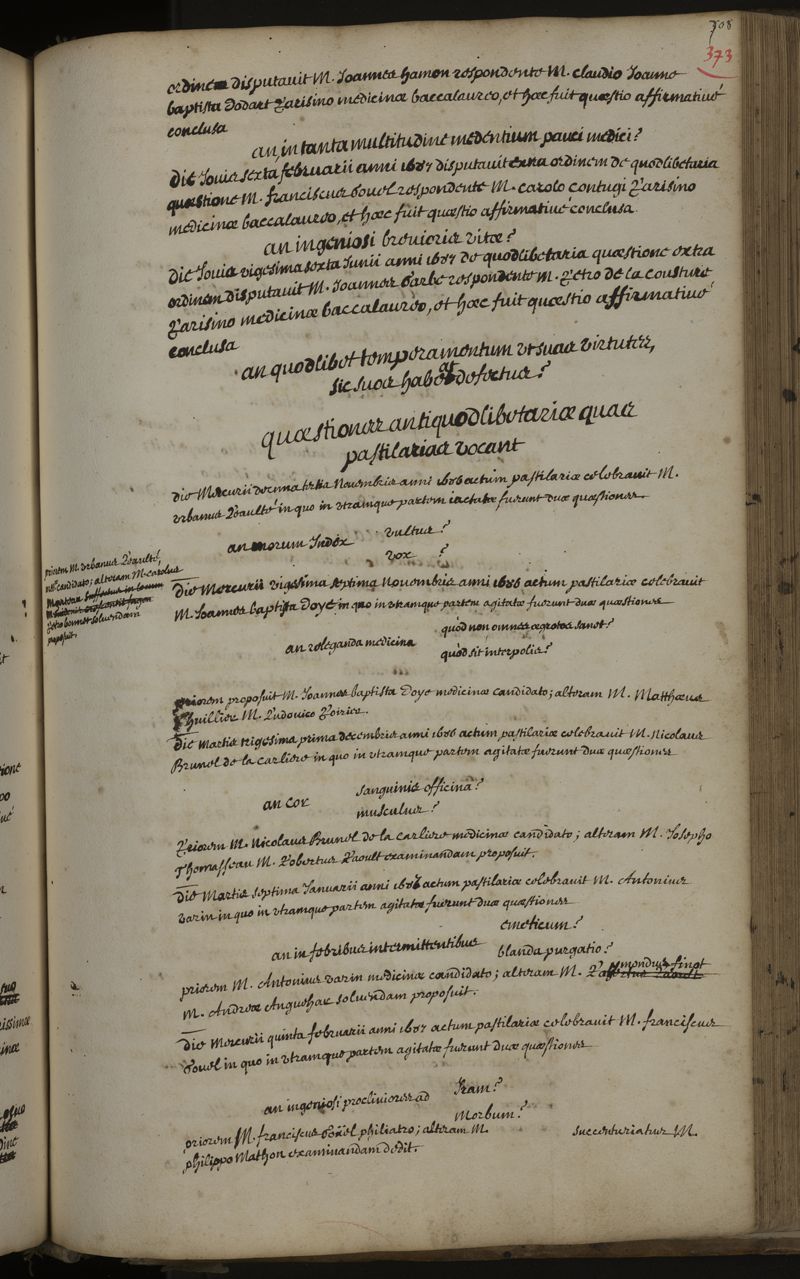 708
373
ordinem disputavit M. Joannes hamon respondente M. claudio Joanne
baptista Dodart Parisino medicinæ baccalaureo, et hæc fuit quæstio affirmativè
conclusa
an in tanta multitudine medentium pauci medici?
Die Jovis sexta februarii anni 1687 disputavit extra ordinem de quodlibetaria
quæstione M. franciscus respondente M. carolo contugi Parisino
medicinæ baccalaureo, et hæc fuit quæstio affirmativè conclusa.
an ingeniosi brevioris vitæ?
Die Jovis vigesima sexta Junii anni 1687 de quodlibetaria quæstione extra
ordinem disputavit M. Joannes barbe respondente M. Petro de la Cousture
Parisino medicinæ baccalaureo, et hæc fuit quæstio affirmativè
conclusa
an quodlibet temperamentum ut suas virtutes,
sic suos habeat defectus?
quæstiones antiquodlibetariæ quas
pastilarias vocant
die Mercurii decima tertia Novembris anni 1686 actum pastilariæ celebravit M.
urbanus Leaulté in quo in utramque partem iactatæ fuerunt duæ quæstiones
an morum Index vultus?
vox ?
priorem M. urbanus Leaulté,
candidato; alteram M. carolus
Petro bonnet solvendam
proposuit.
Die Mercurii vigesima septima Novembris anni 1686 actum pastilariæ celebravit
M. Joannes baptista Doye in quo in utramque partem agitatæ fuerunt duæ quæstiones
quòd non omnes ægrotos sanet?
an releganda medicina
quòd sit interpolis?
priorem proposuit M. Joannes baptista Doye medicinæ candidato; alteram M. Matthæus
Thuillier M. Ludovico Poirier.
Die Martis trigesima prima decembris anni 1686 actum pastilariæ celebravit M. Nicolaus
Brunel de la carliere in quo in utramque partem agitatæ fuerunt duæ quæstiones
sanguinis officina?
an Cor
musculus?
Priorem M. Nicolaus Brunel de la carliere medicinæ candidato; alteram M. Josepho
Thomasseau M. Robertus Raoult examinandam proposuit.
Die Martis septima Januarii anni 1686 actum pastilariæ celebravit M. Antonius
varin in quo in utramque partem agitatæ fuerunt duæ quæstiones
emeticum?
an in febribus intermittentibus
blanda purgatio?
priorem M. Antonius varin medicinæ candidato; alteram M. Raymondus finot
M. Andreæ Enguehar solvendam proposuit.
Die Mercurii quinta februarii anni 1687 actum pastilariæ celebravit M. franciscus
in quo in utramque partem agitatæ fuerunt duæ quæstiones
Iram?
an ingeniosi procliviores ad
Morbum?
priorem M. franciscus philiatro; alteram M. succenturiatus M.
philippo Mathon examinandam dedit.